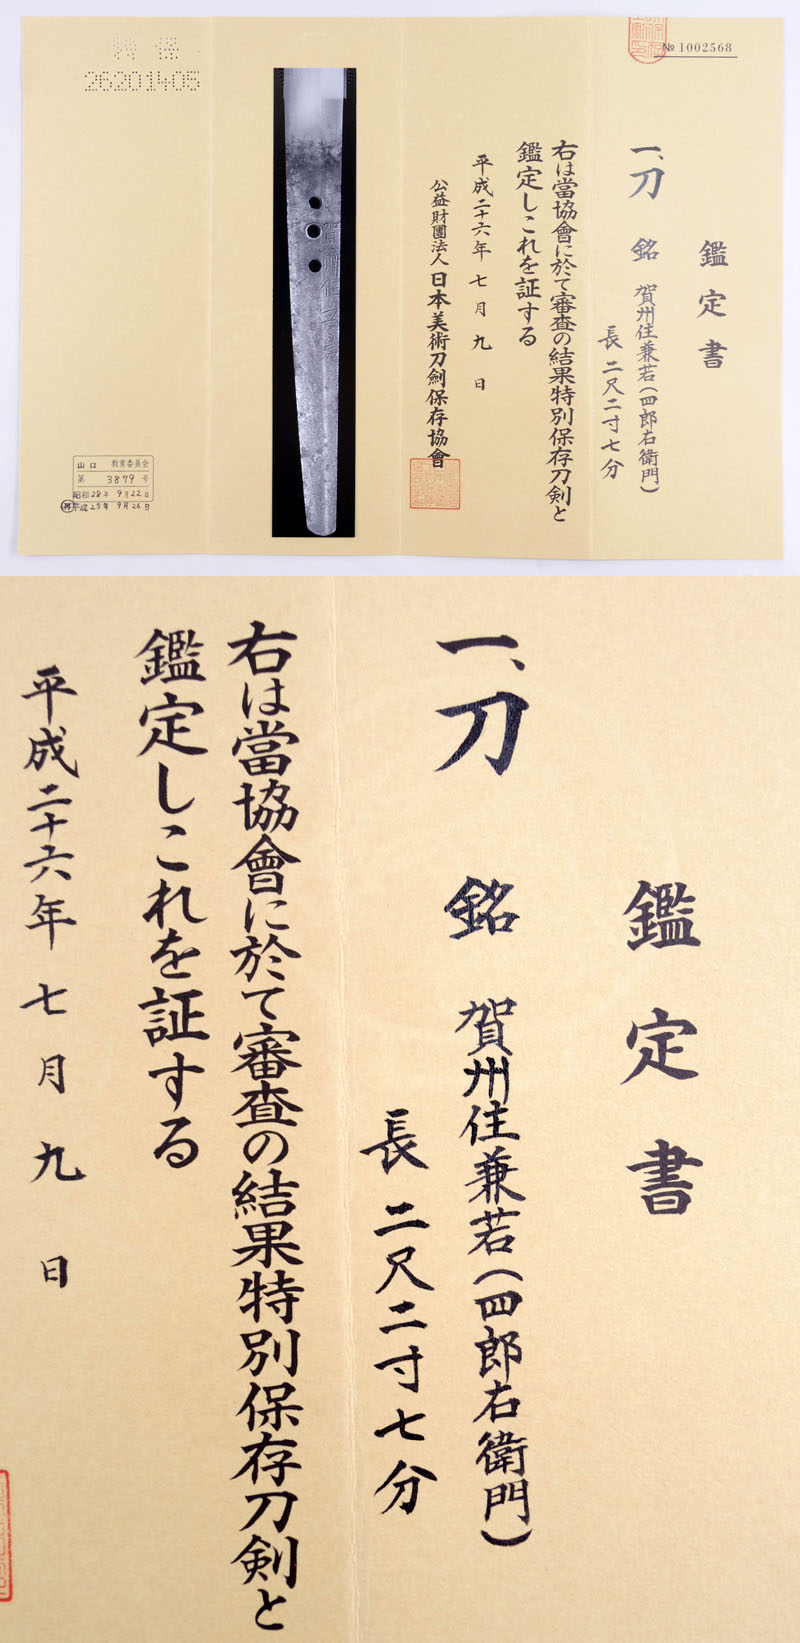 № 1002568
鑑定書
一、刀 銘 賀州住兼若(四郎右衛門)
長 二尺二寸七分
右は當協會に於て審査の結果特別保存刀剣と
鑑定しこれを証する
平成二十六年 七月九日
公益財團法人 日本美術刀劍保存協會
特保
26201405
山口 教育委員会
第 3879 号
昭和28年 9月22日
再 平成25年 9月26日
鑑定書
一、刀 銘 賀州住兼若(四郎右衛門)
長 二尺二寸七分
右は當協會に於て審査の結果特別保存刀剣と
鑑定しこれを証する
平成二十六年 七月九日